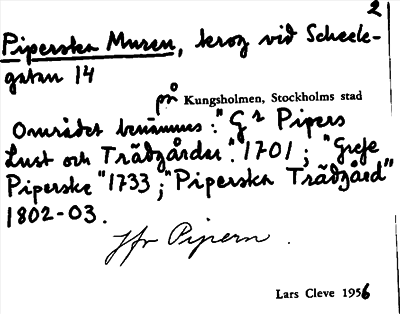 2
Piperska Muren, krog vid Scheele-
gatan 14
på Kungsholmen, Stockholms stad
Området benämnes: "Gr Pipers
Lust och Trädgårdar". 1701; "Grefe
Piperske" 1733; "Piperska Trädgård"
1802-03.
Jfr Pipern.
Lars Cleve 1956